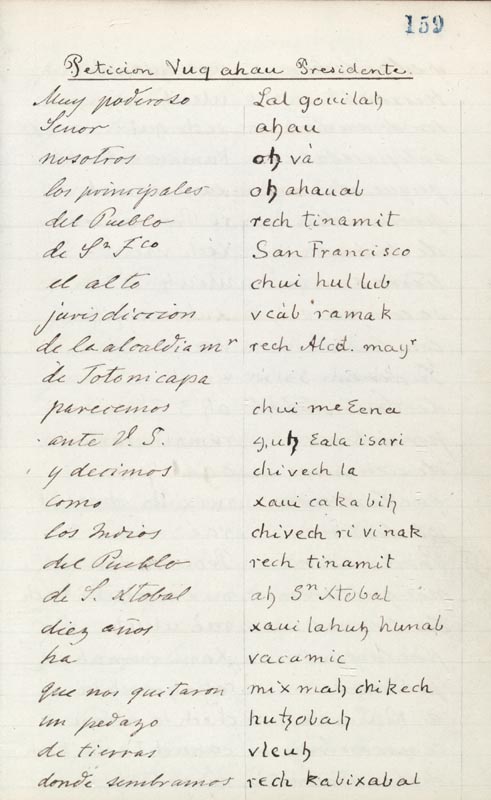 159
Peticion Vuq ahau Presidente.
Muy poderoso Lal gouilaꜧ
Señor aꜧau
nosotros oꜧ và
los principales oꜧ ahauab
del Pueblo rech tinamit
de Sn Fco San Francisco
el alto chui hul lub
jurisdiccion vcàb ramak
de la alcaldia mr rech Alcd. mayr
de Totonicapa
parecemos chui meꜫena
ante V. S. ꜫala isari
y decimos chivech la
como xaui cakabiꜧ
los Indios chivech ri vinak
del Pueblo rech tinamit
de S. Xtobal aꜧ Sn Xtobal
diez años xaui lahuꜧ hunab
ha vacamic
que nos quitaron mix maꜧ chikech
un pedazo hutzobaꜧ
de tierras vleuꜧ
donde sembramos rech kabixabal